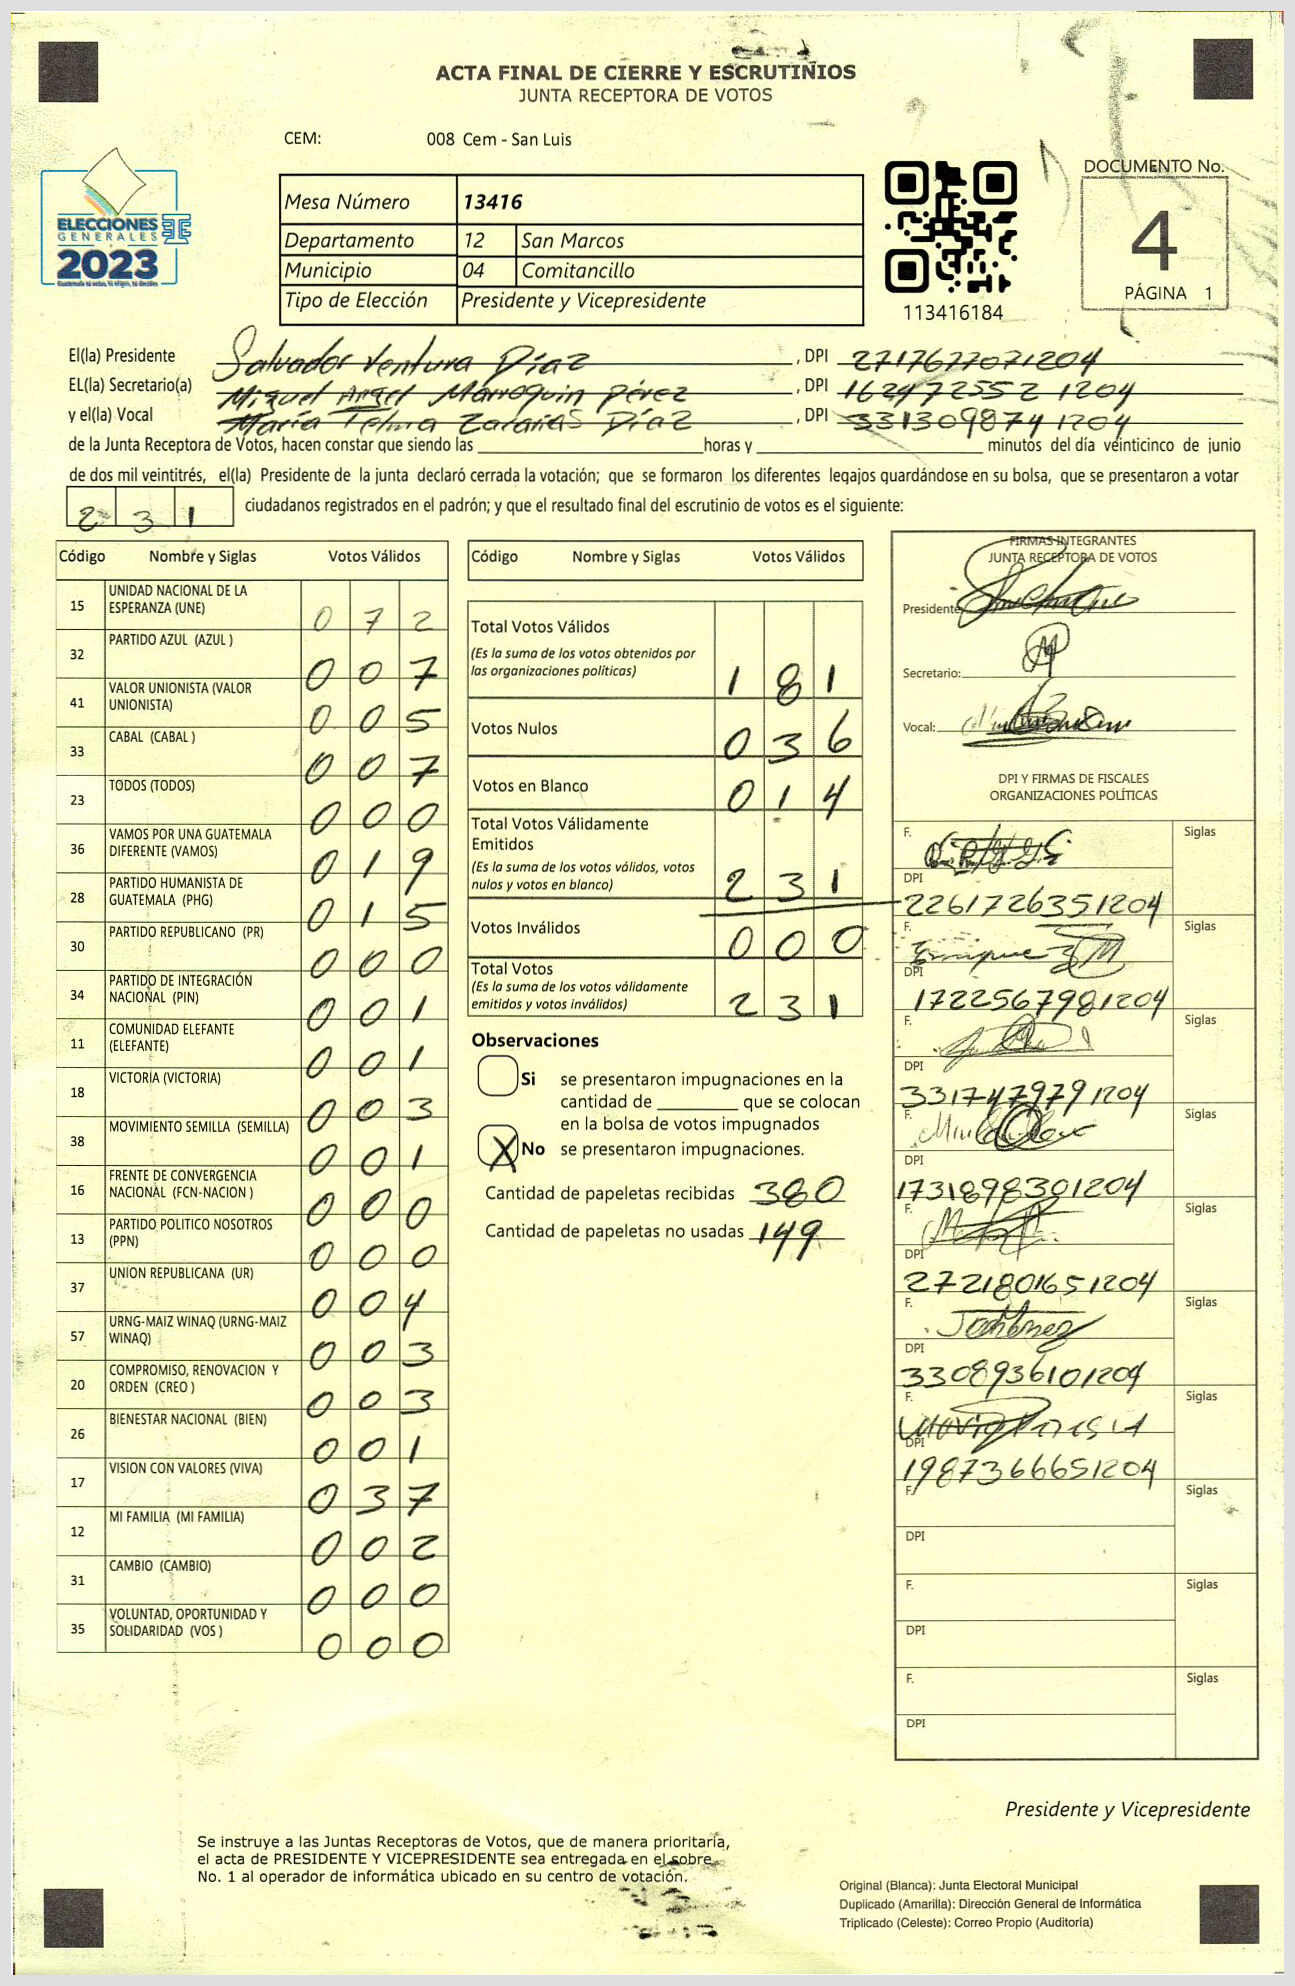 ACTA FINAL DE CIERRE Y ESCRUTINIOS
JUNTA RECEPTORA DE VOTOS
CEM: 008 Cem - San Luis
ELECCIONES
GENERALES
2023
Guatemala tú votas, tú eliges, tú decides
Mesa Número 13416
Departamento 12 San Marcos
Municipio 04 Comitancillo
Tipo de Elección Presidente y Vicepresidente
113416184
DOCUMENTO No.
4
PÁGINA 1
El(la) Presidente Salvador Ventura Díaz , DPI 2717677071204
EL(la) Secretario(a) Miguel Angel Marroquin Pérez , DPI 162472552 1204
y el(la) Vocal María Telma Zacarías Díaz , DPI 331309874 1204
de la Junta Receptora de Votos, hacen constar que siendo las horas y minutos del día veinticinco de junio
de dos mil veintitrés, el(la) Presidente de la junta declaró cerrada la votación; que se formaron los diferentes legajos quardándose en su bolsa, que se presentaron a votar
2 3 1 ciudadanos registrados en el padrón; y que el resultado final del escrutinio de votos es el siguiente:
Código Nombre y Siglas Votos Válidos
15 UNIDAD NACIONAL DE LA ESPERANZA (UNE) 0 7 2
32 PARTIDO AZUL (AZUL ) 0 0 7
41 VALOR UNIONISTA (VALOR UNIONISTA) 0 0 5
33 CABAL (CABAL ) 0 0 7
23 TODOS (TODOS) 0 0 0
36 VAMOS POR UNA GUATEMALA DIFERENTE (VAMOS) 0 1 9
28 PARTIDO HUMANISTA DE GUATEMALA (PHG) 0 1 5
30 PARTIDO REPUBLICANO (PR) 0 0 0
34 PARTIDO DE INTEGRACIÓN NACIONAL (PIN) 0 0 1
11 COMUNIDAD ELEFANTE (ELEFANTE) 0 0 1
18 VICTORIA (VICTORIA) 0 0 3
38 MOVIMIENTO SEMILLA (SEMILLA) 0 0 1
16 FRENTE DE CONVERGENCIA NACIONAL (FCN-NACION ) 0 0 0
13 PARTIDO POLITICO NOSOTROS (PPN) 0 0 0
37 UNION REPUBLICANA (UR) 0 0 4
57 URNG-MAIZ WINAQ (URNG-MAIZ WINAQ) 0 0 3
20 COMPROMISO, RENOVACION Y ORDEN (CREO ) 0 0 3
26 BIENESTAR NACIONAL (BIEN) 0 0 1
17 VISION CON VALORES (VIVA) 0 3 7
12 MI FAMILIA (MI FAMILIA) 0 0 2
31 CAMBIO (CAMBIO) 0 0 0
35 VOLUNTAD, OPORTUNIDAD Y SOLIDARIDAD (VOS ) 0 0 0
Código Nombre y Siglas Votos Válidos
Total Votos Válidos
(Es la suma de los votos obtenidos por
las organizaciones políticas) 1 8 1
Votos Nulos 0 3 6
Votos en Blanco 0 1 4
Total Votos Válidamente
Emitidos
(Es la suma de los votos válidos, votos
nulos y votos en blanco) 2 3 1
Votos Inválidos 0 0 0
Total Votos
(Es la suma de los votos válidamente
emitidos y votos inválidos) 2 3 1
Observaciones
Si se presentaron impugnaciones en la
cantidad de que se colocan
en la bolsa de votos impugnados
X No se presentaron impugnaciones.
Cantidad de papeletas recibidas 380
Cantidad de papeletas no usadas 149
FIRMAS INTEGRANTES
JUNTA RECEPTORA DE VOTOS
Presidente:
Secretario:
Vocal:
DPI Y FIRMAS DE FISCALES
ORGANIZACIONES POLÍTICAS
F. Siglas
DPI
2261726351204
F. Enrique Siglas
DPI
1722567981204
F. Siglas
DPI
3317479791204
F. Siglas
DPI
1731898301204
F. Siglas
DPI
2721801651204
F. Siglas
DPI
3308936101204
F. Siglas
DPI
1987366651204
F. Siglas
DPI
F. Siglas
DPI
F. Siglas
DPI
Presidente y Vicepresidente
Se instruye a las Juntas Receptoras de Votos, que de manera prioritaria,
el acta de PRESIDENTE Y VICEPRESIDENTE sea entregada en el sobre
No. 1 al operador de informática ubicado en su centro de votación.
Original (Blanca): Junta Electoral Municipal
Duplicado (Amarilla): Dirección General de Informática
Triplicado (Celeste): Correo Propio (Auditoría)